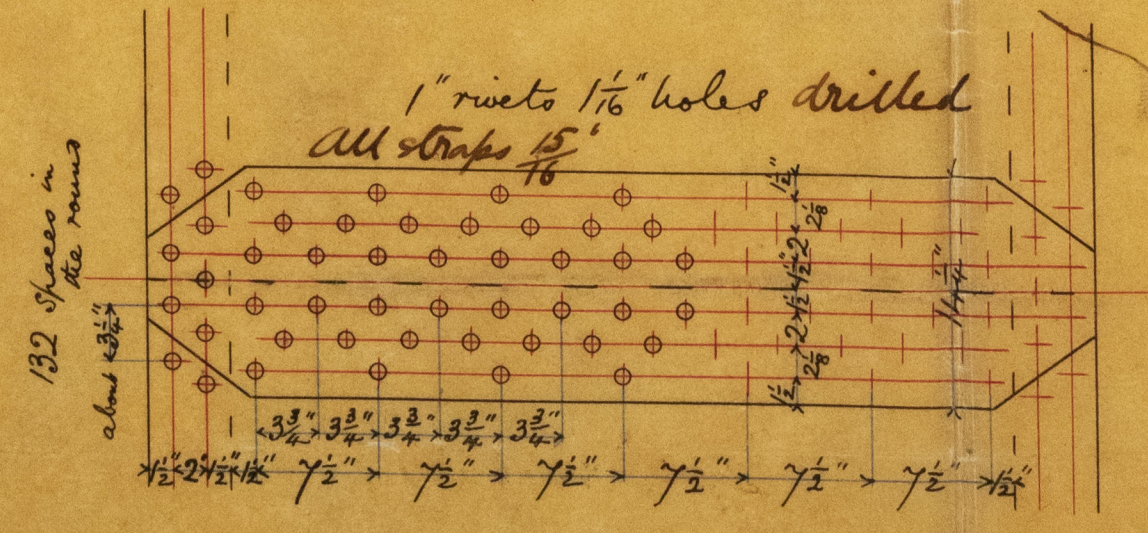 1" rivets 1 1/16" holes drilled
All straps 15/16"
132 Spaces in
the round
about 3 1/4"
1 1/2"
2 1/8
2
1 1/2"
1 1/2
2
2 1/8
1 1/2
14 1/4"
3 3/4" 3 3/4" 3 3/4" 3 3/4" 3 3/4"
1 1/2" 2" 1 1/2" 1 1/2" 7 1/2" 7 1/2" 7 1/2" 7 1/2" 7 1/2" 7 1/2" 1 1/2"